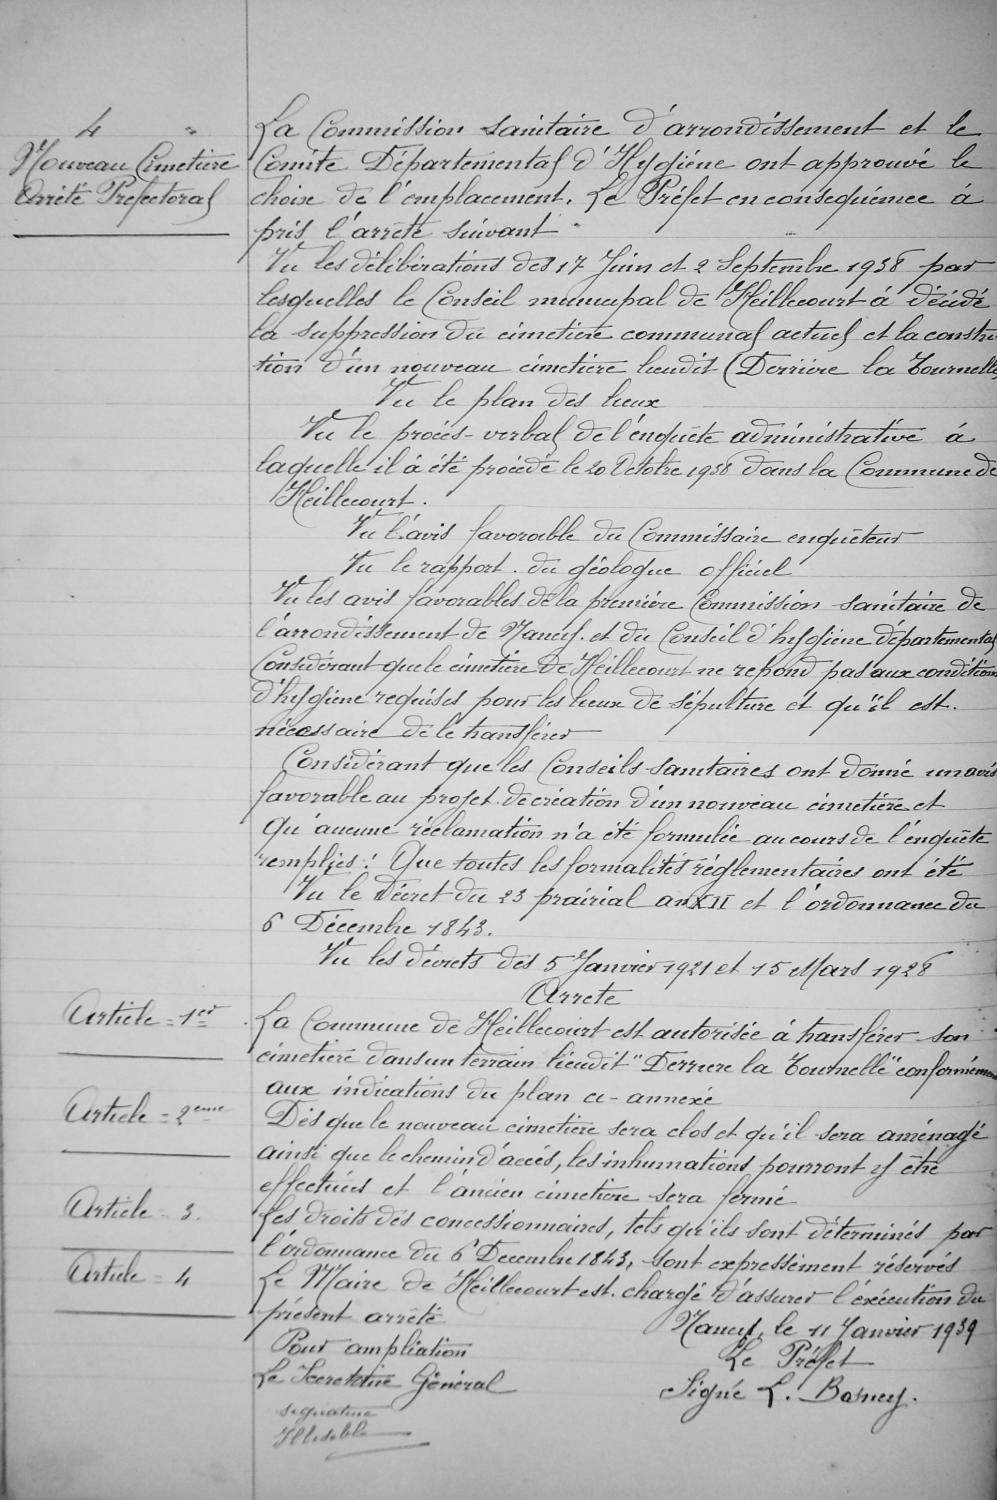 4
Nouveau Cimetière
Arrêté Préfectoral
La Commission sanitaire d'arrondissement et le
Comité Départemental d'Hygiène ont approuvé le
choix de l'emplacement. Le Préfet en conséquence à
pris l'arrêté suivant
Vu les délibérations des 17 Juin et 2 Septembre 1938 par
lesquelles le Conseil municipal de Heillecourt à décidé
la suppression du cimetière communal actuel et la constru-
tion d'un nouveau cimetière lieudit (Derrière la Tournelle)
Vu le plan des lieux
Vu le procès-verbal de l'enquête administrative à
laquelle il à été procédé le 20 Octobre 1938 dans la Commune de
Heillecourt.
Vu l'avis favorable du Commissaire enquêteur
Vu le rapport du géologue officiel
Vu les avis favorables de la première Commission sanitaire de
l'arrondissement de Nancy et du Conseil d'hygiène départemental
Considérant que le cimetière de Heillecourt ne répond pas aux conditions
d'hygiène requises pour les lieux de sépulture et qu'il est
nécessaire de le transférer
Considérant que les Conseils sanitaires ont donné un avis
favorable au projet de création d'un nouveau cimetière et
qu'aucune réclamation n'a été formulée au cours de l'enquête
remplies : Que toutes les formalités réglementaires ont été
Vu le Décret du 23 prairial an XII et l'ordonnance du
6 Décembre 1843.
Vu les décrets des 5 Janvier 1921 et 15 Mars 1928
Arrete
Article = 1er
La Commune de Heillecourt est autorisée à transférer son
cimetière dans un terrain lieudit "Derriere la Tournelle" conformément
aux indications du plan ci-annexé
Article = 2ème
Dès que le nouveau cimetière sera clos et qu'il sera aménagé
ainsi que le chemin d'accès, les inhumations pourront y être
effectuées et l'ancien cimetière sera fermé
Article = 3.
Les droits des concessionnaires, tels qu'ils sont déterminés par
l'ordonnance du 6 Decembre 1843, sont expressément réservés
Article = 4
Le Maire de Heillecourt est chargé d'assurer l'éxécution du
présent arrêté
Nancy, le 11 Janvier 1939
Pour ampliation
Le Préfet
Le Secretaire Général
Signé L. Bosney.
signature
Illisible